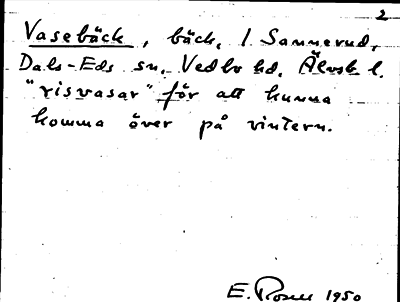 2
Vasebäck, bäck, 1 Sannerud,
Dals-Eds sn, Vedbo hd, Älvsb l.
"risvasar" för att kunna
komma över på vintern.
E. Rosell 1950